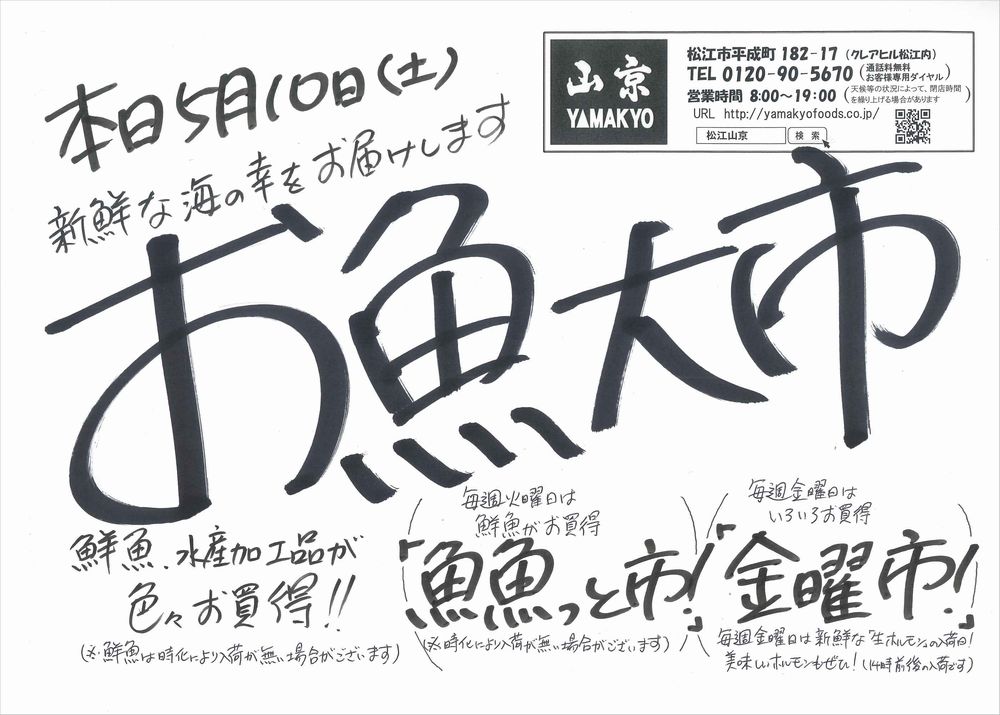 本日5月10日(土)
新鮮な海の幸をお届けします
山京
YAMAKYO
松江市平成町 182-17 (クレアヒル松江内)
TEL 0120-90-5670 (通話料無料 お客様専用ダイヤル)
営業時間 8:00～19:00 (天候等の状況によって、閉店時間を繰り上げる場合があります)
URL http://yamakyofoods.co.jp/
松江山京 検索
お魚大市
鮮魚、水産加工品が
色々お買得!!
(※鮮魚は時化により入荷が無い場合がございます)
毎週火曜日は
鮮魚がお買得
「魚魚っと市!」
(※時化により入荷が無い場合がございます)
毎週金曜日は
いろいろお買得
「金曜市!」
毎週金曜日は新鮮な「生ホルモン」の入荷日!
美味しいホルモンもぜひ! (14時前後の入荷です)